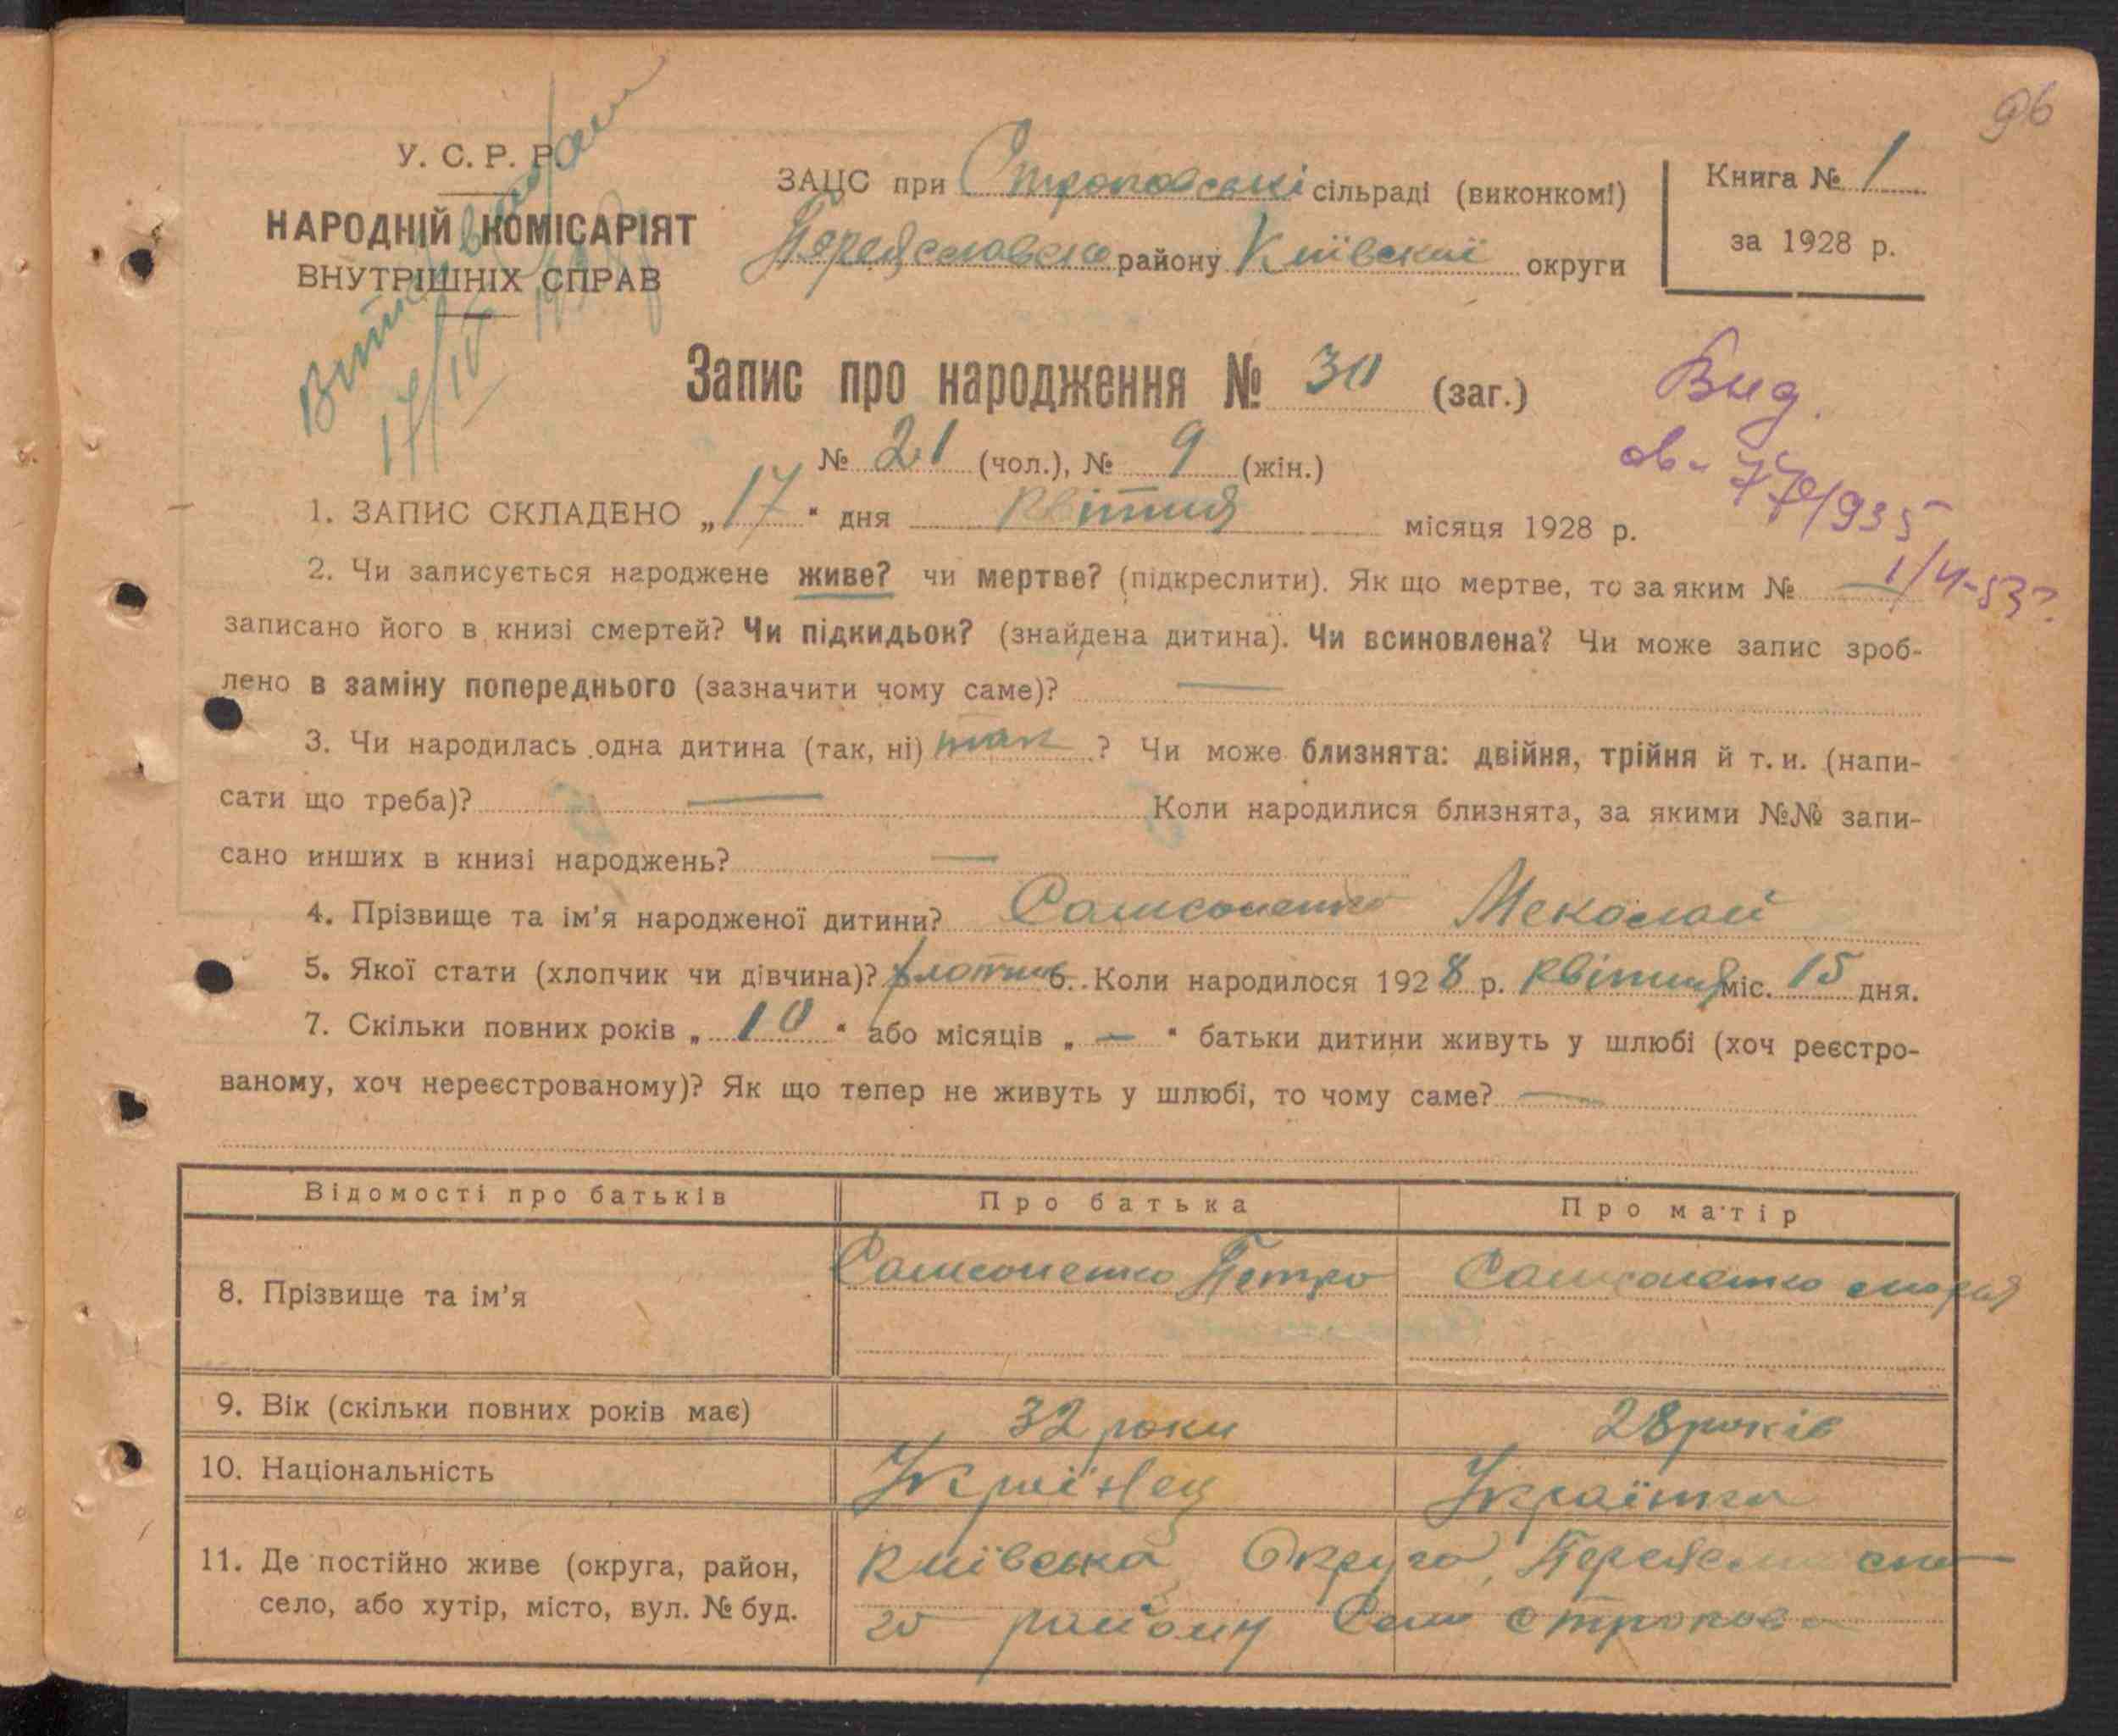 96
У. С. Р. Р.
НАРОДНІЙ КОМІСАРІЯТ
ВНУТРІШНІХ СПРАВ
17/IV
ЗАЦС при Строповські сільраді (виконкомі)
Переяславсько району Київської округи
Книга № 1
за 1928 р.
Запис про народження № 30 (заг.)
Вид.
№ 21 (чол.), № 9 (жін.)
1. ЗАПИС СКЛАДЕНО „17" дня квітня місяця 1928 р.
2. Чи записується народжене живе? чи мертве? (підкреслити). Як що мертве, то за яким № —
записано його в книзі смертей? Чи підкидьок? (знайдена дитина). Чи всиновлена? Чи може запис зроб-
лено в заміну попереднього (зазначити чому саме)? —
3. Чи народилась одна дитина (так, ні) так ? Чи може близнята: двійня, трійня й т. и. (напи-
сати що треба)? — Коли народилися близнята, за якими №№ запи-
сано инших в книзі народжень? —
4. Прізвище та ім'я народженої дитини? Самсоненко Меколай
5. Якої стати (хлопчик чи дівчина)? 6. Коли народилося 1928 р. квітня міс. 15 дня.
7. Скільки повних років „10" або місяців „—" батьки дитини живуть у шлюбі (хоч реєстро-
ваному, хоч нереєстрованому)? Як що тепер не живуть у шлюбі, то чому саме? —
Відомості про батьків Про батька Про матір
8. Прізвище та ім'я Самсоненко Петро Самсоненко
9. Вік (скільки повних років має) 32 роки 28 років
10. Національність Українец Українка
11. Де постійно живе (округа, район, Київська Округа, Переяславсько
село, або хутір, місто, вул. № буд. го району Село Стропова